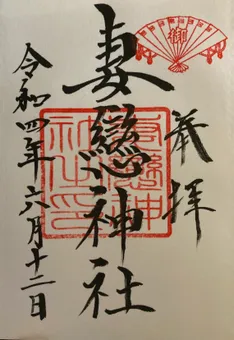 奉拝
妻戀神社
令和四年六月十二日